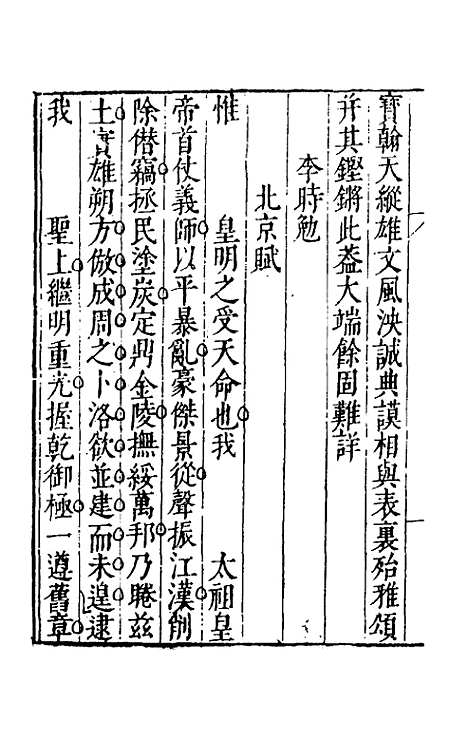 寶翰天縱雄文風泱誠典謨相與表裏殆雅頌
并其鏗鏘此葢大端餘固難詳
李時勉
北京賦
惟 皇明之受天命也我 太祖皇
帝首仗義師以平暴亂豪傑景從聲振江漢削
除僣竊拯民塗炭定鼎金陵撫綏萬邦乃睠兹
土實雄朔方倣成周之卜洛欲並建而未遑逮
我 聖上繼明重光握乾御極一遵舊章